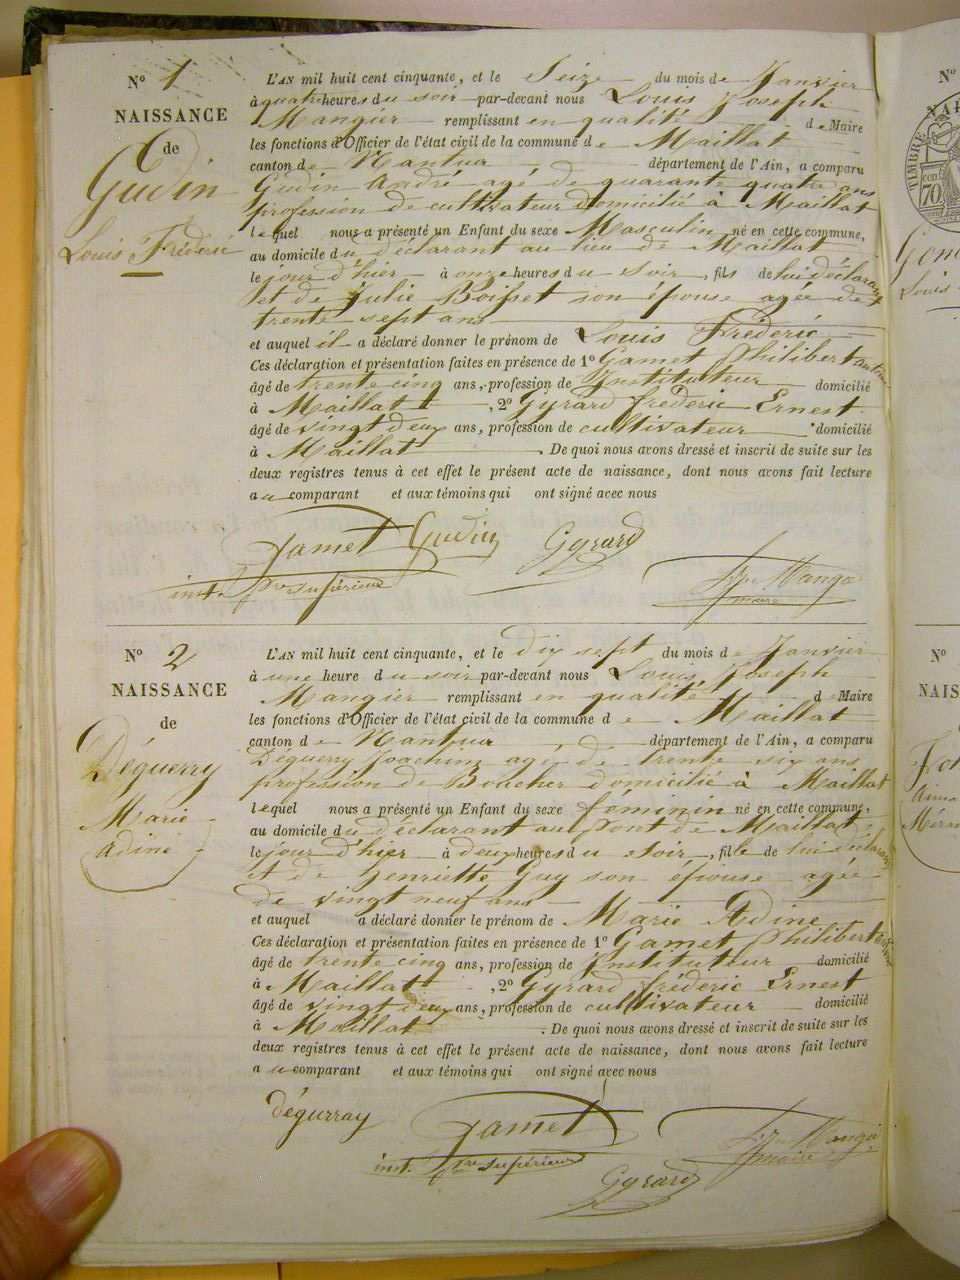 N° 1
NAISSANCE
de
Gudin
Louis Fréderic
L'AN mil huit cent cinquante, et le Seize du mois de Janvier
à quatre heures du soir par-devant nous Louis Joseph
Mangier remplissant en qualité de Maire
les fonctions d'Officier de l'état civil de la commune de Maillat
canton de Nantua département de l'Ain, a comparu
Gudin André agé de quarante quatre ans
profession de cultivateur domicilié à Maillat
lequel nous a présenté un Enfant du sexe Masculin né en cette commune,
au domicile du déclarant au lieu de Maillat
le jour d'hier à onze heures du soir, fils de lui déclarant
et de Julie Boisset son épouse agée de
trente sept ans
et auquel il a déclaré donner le prénom de Louis Fréderic
Ces déclaration et présentation faites en présence de 1° Gamet Philibert
âgé de trente cinq ans, profession de Instituteur domicilié
à Maillat, 2° Gyrard fréderic Ernest
âgé de vingt deux ans, profession de cultivateur domicilié
à Maillat. De quoi nous avons dressé et inscrit de suite sur les
deux registres tenus à cet effet le présent acte de naissance, dont nous avons fait lecture
au comparant et aux témoins qui ont signé avec nous
Gamet Gudin Gyrard
inst. supérieur
maire
N° 2
NAISSANCE
de
Déguerry
Marie
Adine
L'AN mil huit cent cinquante, et le dix sept du mois de Janvier
à une heure du soir par-devant nous Louis Joseph
Mangier remplissant en qualité de Maire
les fonctions d'Officier de l'état civil de la commune de Maillat
canton de Nantua département de l'Ain, a comparu
Déguerry Joachim agé de trente six ans
profession de Boucher domicilié à Maillat
lequel nous a présenté un Enfant du sexe féminin né en cette commune,
au domicile du déclarant au pont de Maillat
le jour d'hier à deux heures du soir, fille de lui déclarant
et de henriette Guy son épouse agée
de vingt neuf ans
et auquel a déclaré donner le prénom de Marie Adine
Ces déclaration et présentation faites en présence de 1° Gamet Philibert
âgé de trente cinq ans, profession de Instituteur domicilié
à Maillat, 2° Gyrard fréderic Ernest
âgé de vingt deux ans, profession de cultivateur domicilié
à Maillat. De quoi nous avons dressé et inscrit de suite sur les
deux registres tenus à cet effet le présent acte de naissance, dont nous avons fait lecture
au comparant et aux témoins qui ont signé avec nous
dégurray Gamet
inst. supérieur
maire
Gyrard
N°
TIMBRE
70
Louis
N°